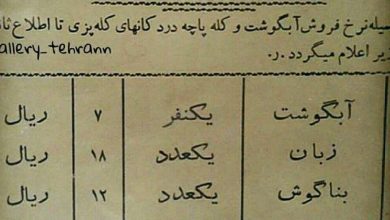 سیله نرخ فروش آبگوشت و کله پاچه در دکانهای کله‌پزی تا اطلاع ثان
یر اعلام میگردد .ر.
allery_tehrann
آبگوشت یکنفر ۷ ریال
زبان یکعدد ۱۸ ریال
بناگوش یکعدد ۱۲ ریال